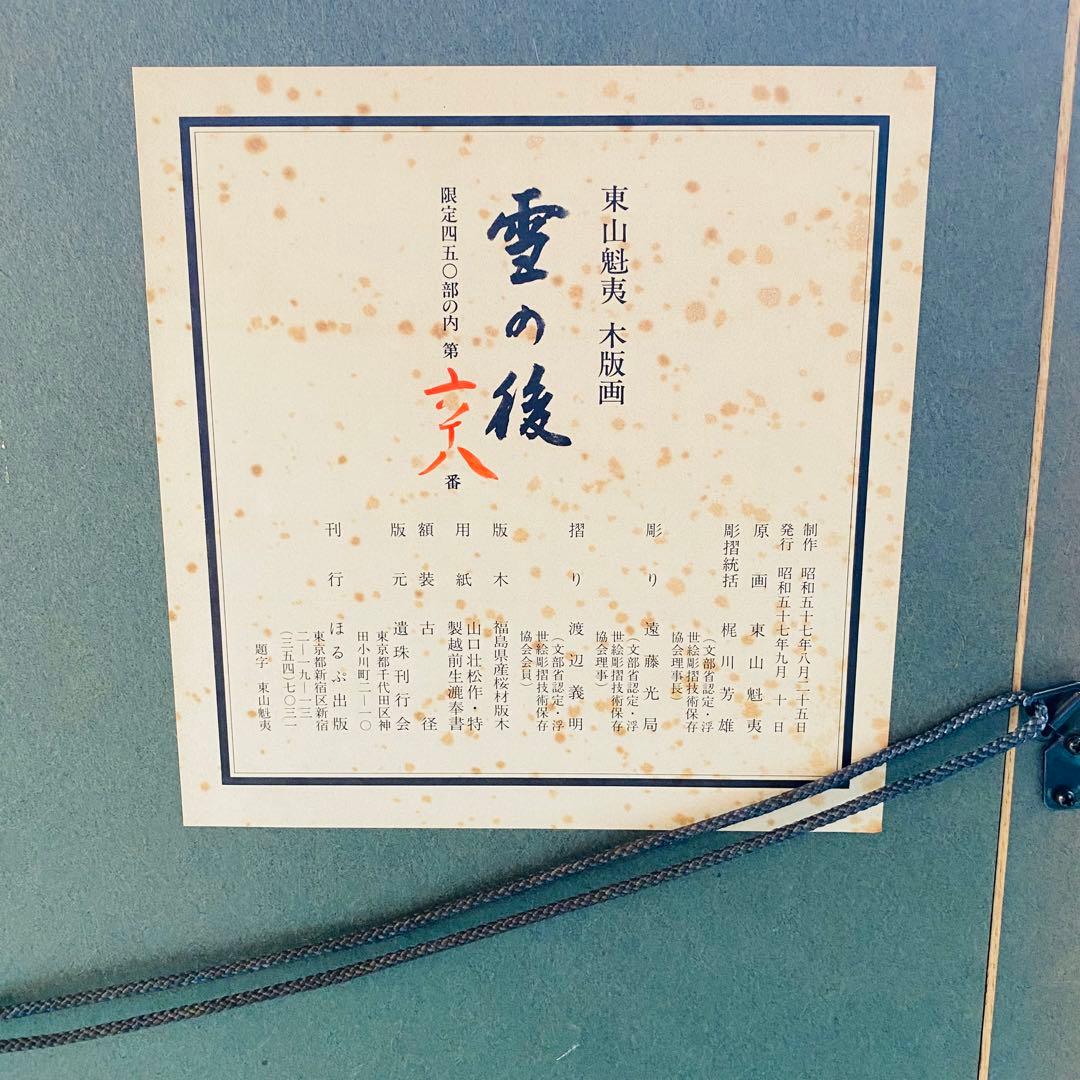 東山魁夷 木版画
雪の後
限定四五〇部の内 第
番
制作 昭和五十七年八月二十五日
発行 昭和五十七年九月 十 日
原画 東山魁夷
彫摺統括 梶川芳雄
（文部省認定・浮
世絵彫摺技術保存
協会理事長）
彫り 遠藤光局
（文部省認定・浮
世絵彫摺技術保存
協会理事）
摺り 渡辺義明
（文部省認定・浮
世絵彫摺技術保存
協会会員）
版木 福島県産桜材版木
用紙 山口壮松作・特
製越前生漉奉書
額装 古径
版元 遺珠刊行会
東京都千代田区神
田小川町二―一〇
刊行 ほるぷ出版
東京都新宿区新宿
二―一九―一三
（三五四）七〇三一
題字 東山魁夷